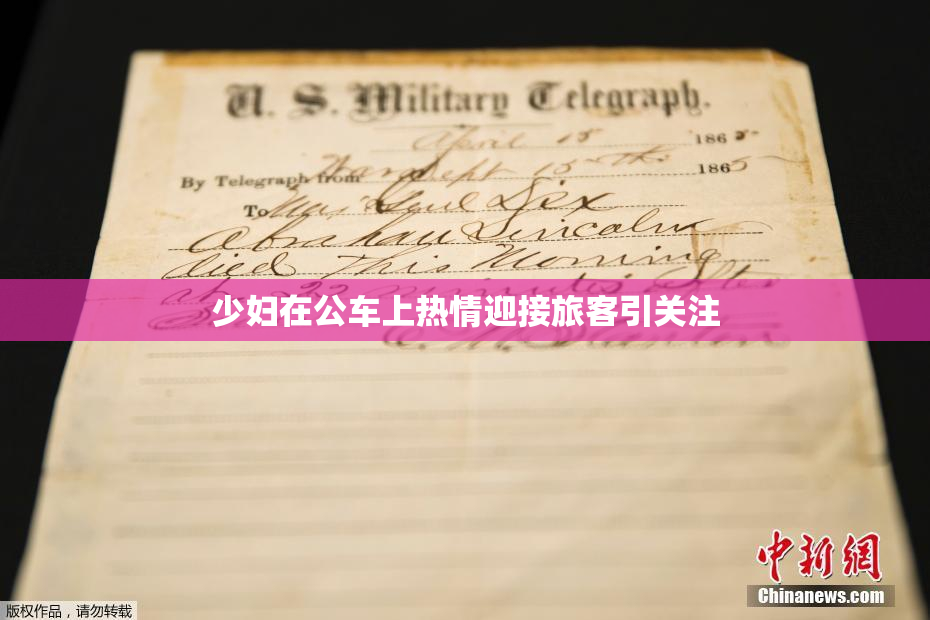 U. S. Military Telegraph.
April 15 1865.
By Telegraph from War Dept 15th 1865
To Maj Genl Dix
Abraham Lincoln
died This Morning
at 22 minutes after
少妇在公车上热情迎接旅客引关注
E. M. Stanton
中新网
Chinanews.com
版权作品，请勿转载